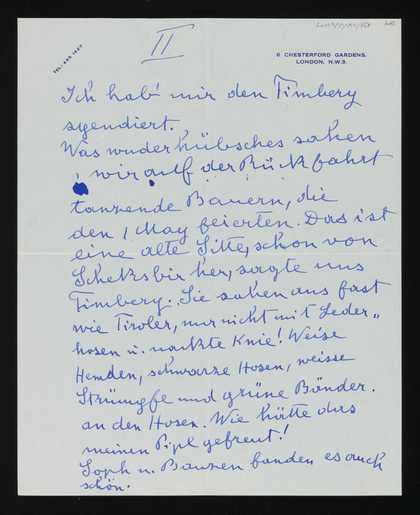 II
6 CHESTERFORD GARDENS,
LONDON, N.W.3.
Ich hab' mir den Timbery
spendiert.
Was wunderhübsches sahen
wir auf der Rückfahrt
tanzende Bauern, die
den 1 May feierten. Das ist
eine alte Sitte, schon von
her, sagte uns
Timbery. Sie sahen aus fast
wie Tiroler, nur nicht mit Leder„
hosen u. nackte Knie! Weise
Hemden, schwarze Hosen, weisse
Strümpfe und grüne Bänder.
an den Hosen. Wie hätte das
meinen Pipl gefreut!
Soph u. Bauzen fanden es auch
schön.